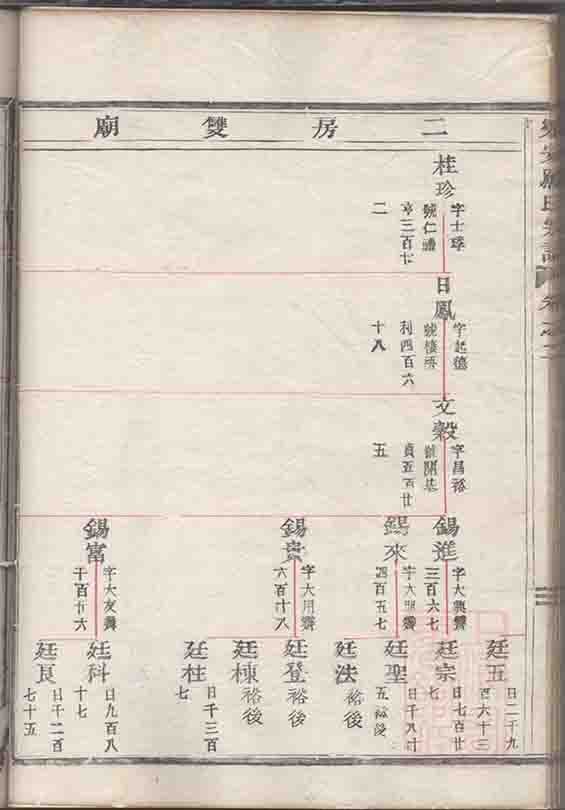 二房雙廟
桂珍
字士璆
日鳳
字起德
號棲梧
利四百六
十八
文穀
字昌裕
貞五百廿
五
錫進
三百六七
錫來
四百五七
錫貴
字大用
六百十八
錫富
字大友
千百廿六
廷玉
日二千九
百六十三
廷宗
日七百廿
七
廷聖
日千八十
五裕後
廷法
裕後
廷登
裕後
廷棟
裕後
廷柱
日千三百
七
廷科
日九百八
十七
廷良
日千二百
七十五